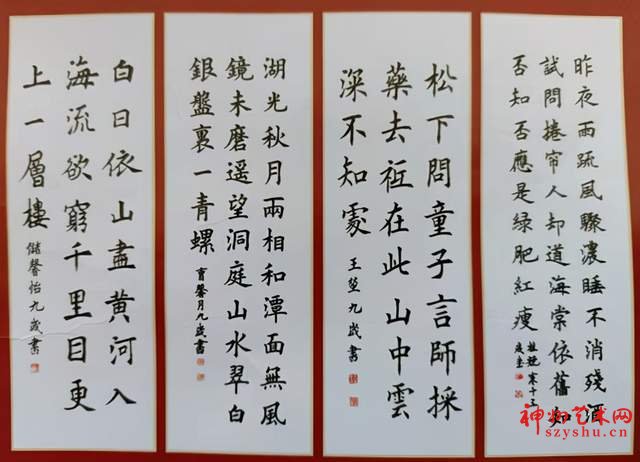 昨夜雨疏風驟濃睡不消殘酒
試問捲帘人却道海棠依舊知
否知否應是綠肥紅瘦
松下問童子言師採
藥去祗在此山中雲
深不知處
王 九歲書
湖光秋月兩相和潭面無風
鏡未磨遥望洞庭山水翠白
銀盤裏一青螺
馨月九歲書
白日依山盡黄河入
海流欲窮千里目更
上一層樓
儲馨怡九歲書
神州艺术网
szyshu.cn